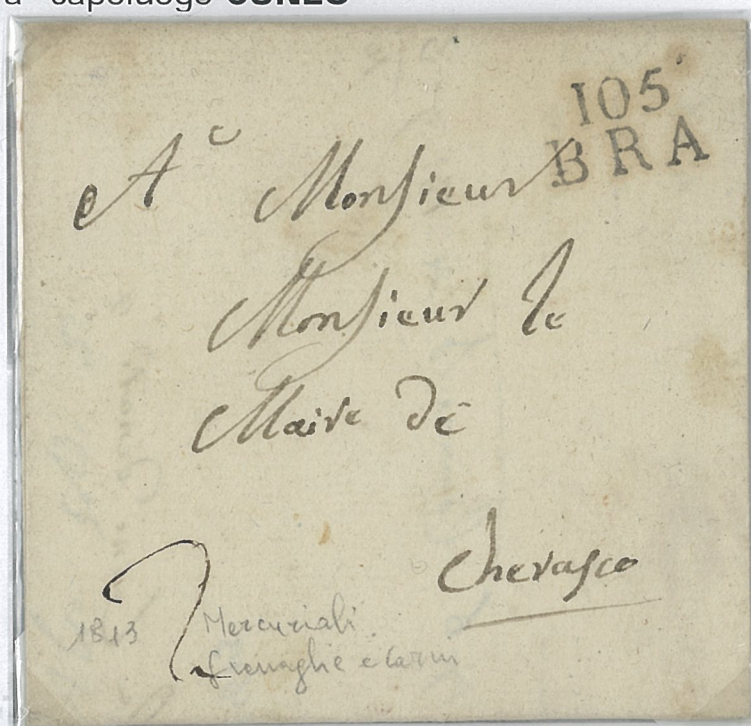 a capoluogo CUNEO
105
BRA
A Monsieur
Monsieur le
Maire de
Cherasco
1813 Mercuriali
e carni